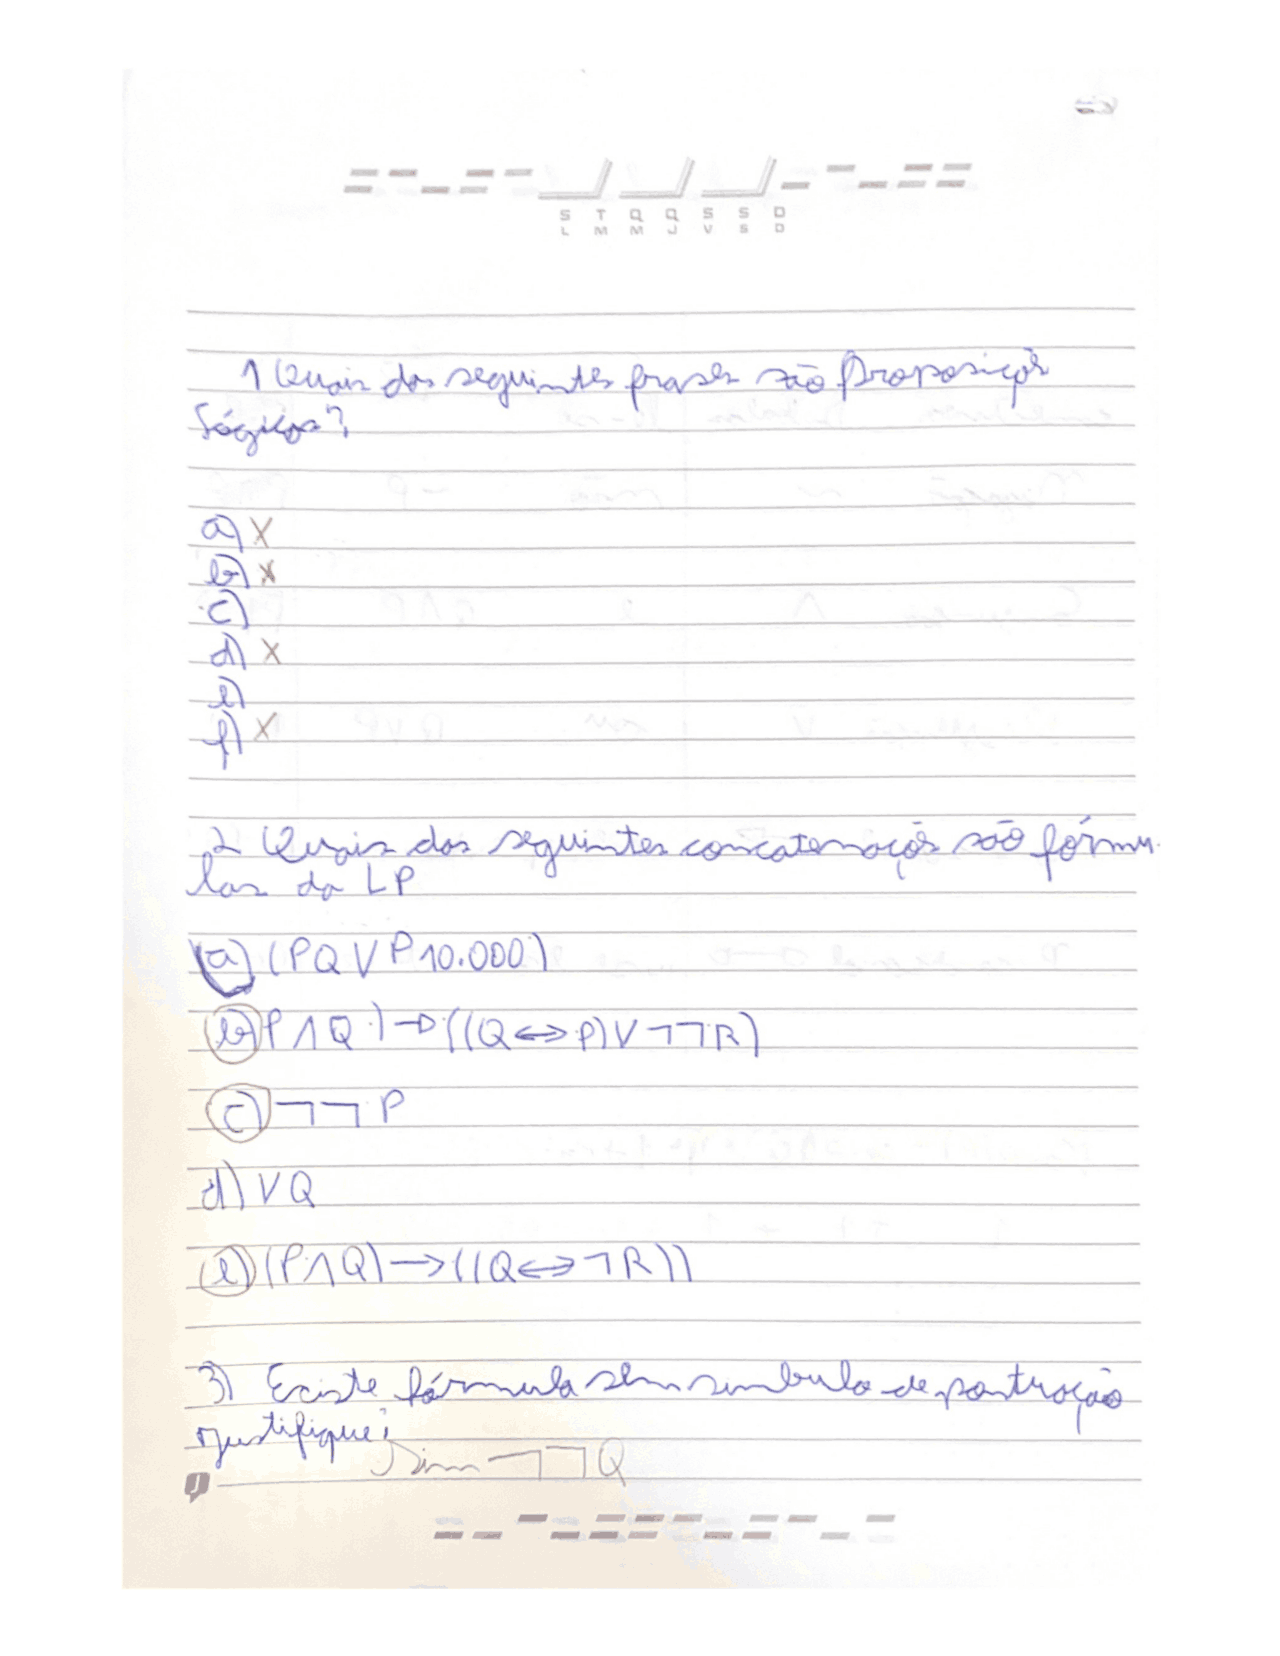 S T Q Q S S D
L M M J V S D
1 Quais das seguintes frases são Proposiçõs
Lógicas?
a) X
b) X
c)
d) X
e)
f) X
2 Quais das seguintes concatenaçõs são fórmu-
las da LP
a) (PQ V P10.000)
b) P ∧ Q ) → ((Q ↔ P) V ¬¬R)
c) ¬¬P
d) V Q
e) (P ∧ Q) → ((Q ↔ ¬R))
3) Existe fórmula sem simbulo de pontuação
justifique?
Sim ¬¬Q